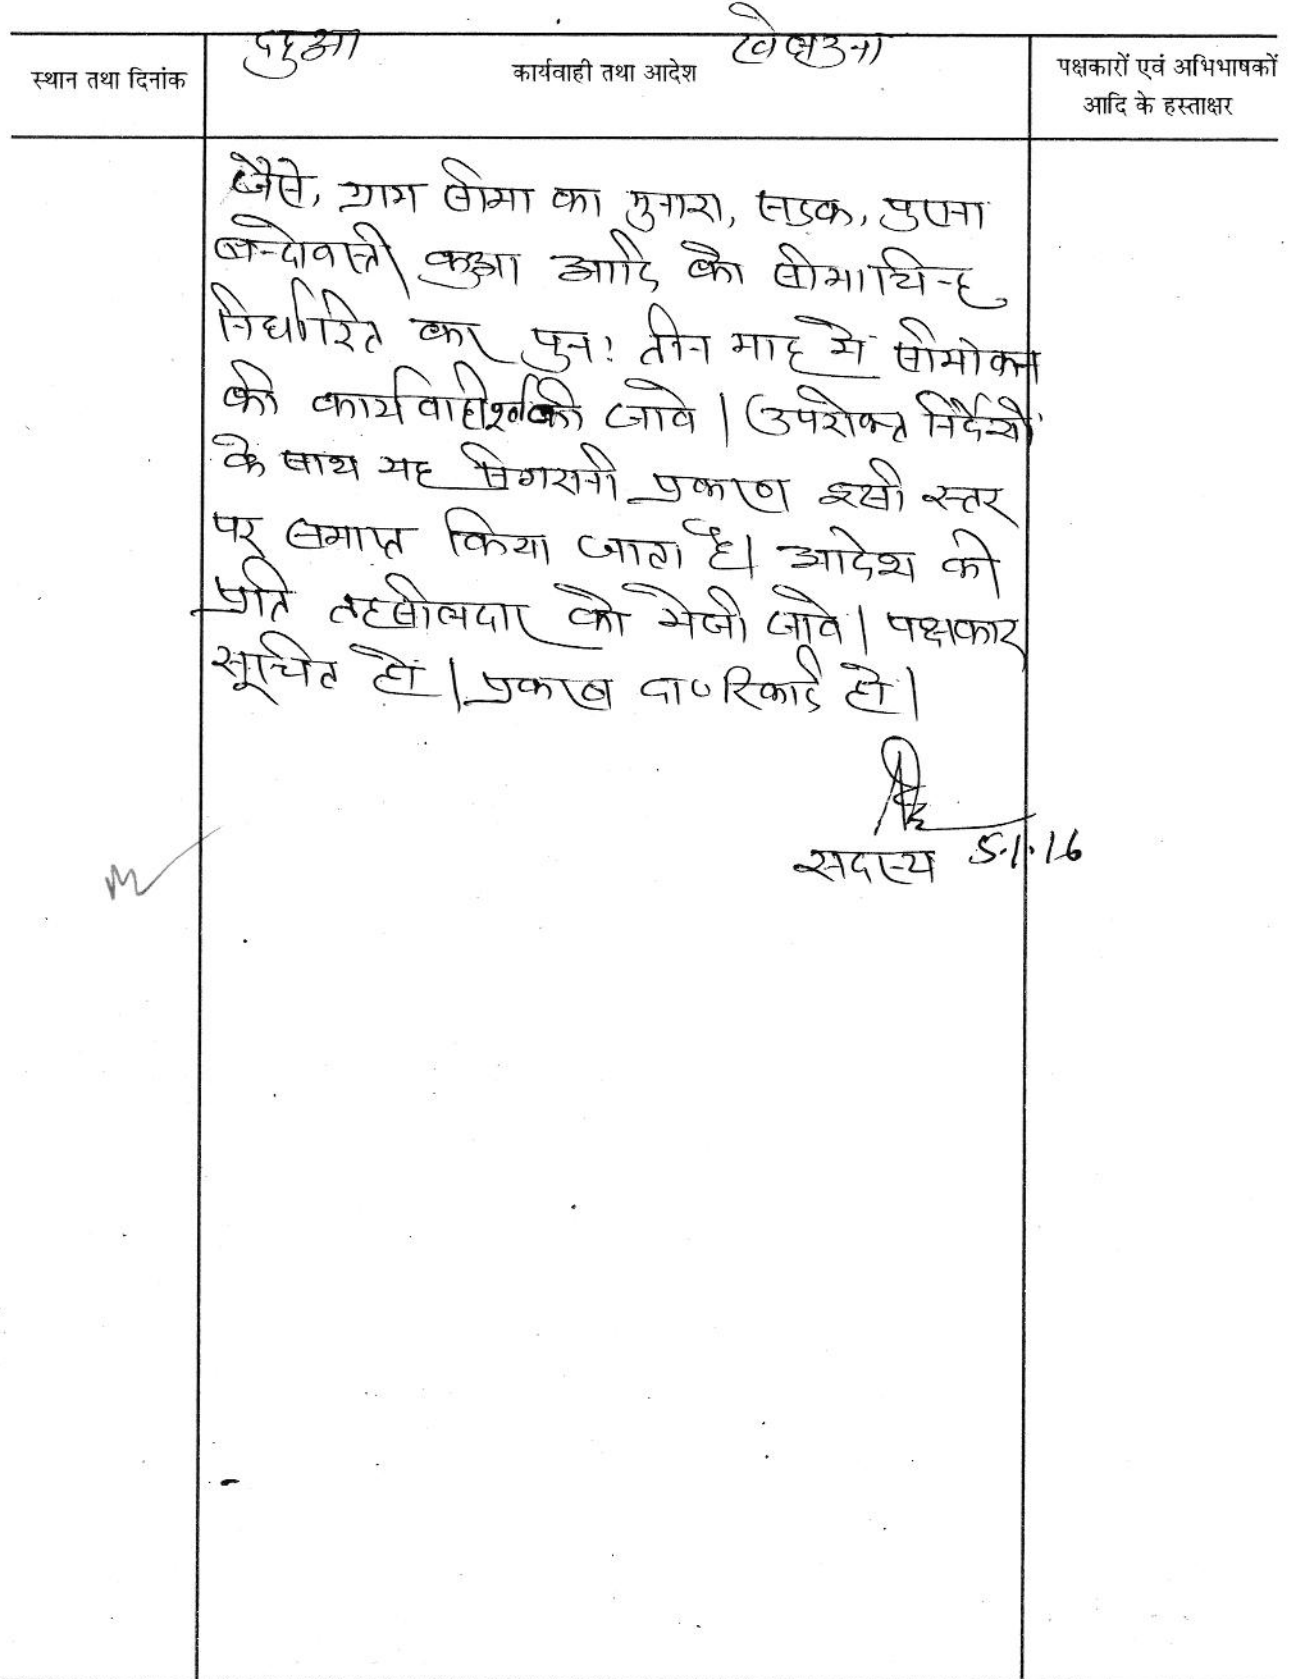 ददुआ
स्थान तथा दिनांक
कार्यवाही तथा आदेश
पक्षकारों एवं अभिभाषकों
आदि के हस्ताक्षर
जैसे, ग्राम सीमा का मुनारा, सडक, पुराना
बन्दोवस्ती कुआ आदि को सीमाचिन्ह
निर्धारित कर पुनः तीन माह में सीमांकन
की कार्यवाही की जावे । उपरोक्त निर्देशों
के साथ यह निगरानी प्रकरण इसी स्तर
पर समाप्त किया जाता है। आदेश की
प्रति तहसीलदार को भेजी जावे । पक्षकार
सूचित हों । प्रकरण दा० रिकार्ड हो ।
सदस्य 5.1.16